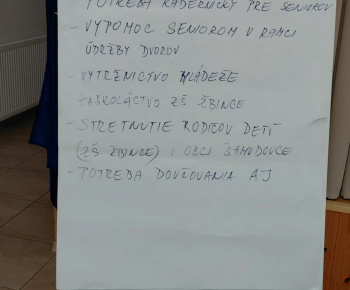 - POTREBA KADERNÍČKY PRE SENIOROV
- VÝPOMOC SENIOROM V RÁMCI
ÚDRŽBY DVOROV
- VÝTRŽNÍCTVO MLÁDEŽE
ZÁŠKOLÁCTVO ZŠ ŽBINCE
- STRETNUTIE RODIČOV DETÍ
(ZŠ ŽBINCE) OBCI ŠAMUDOVCE
- POTREBA DOUČOVANIA AJ